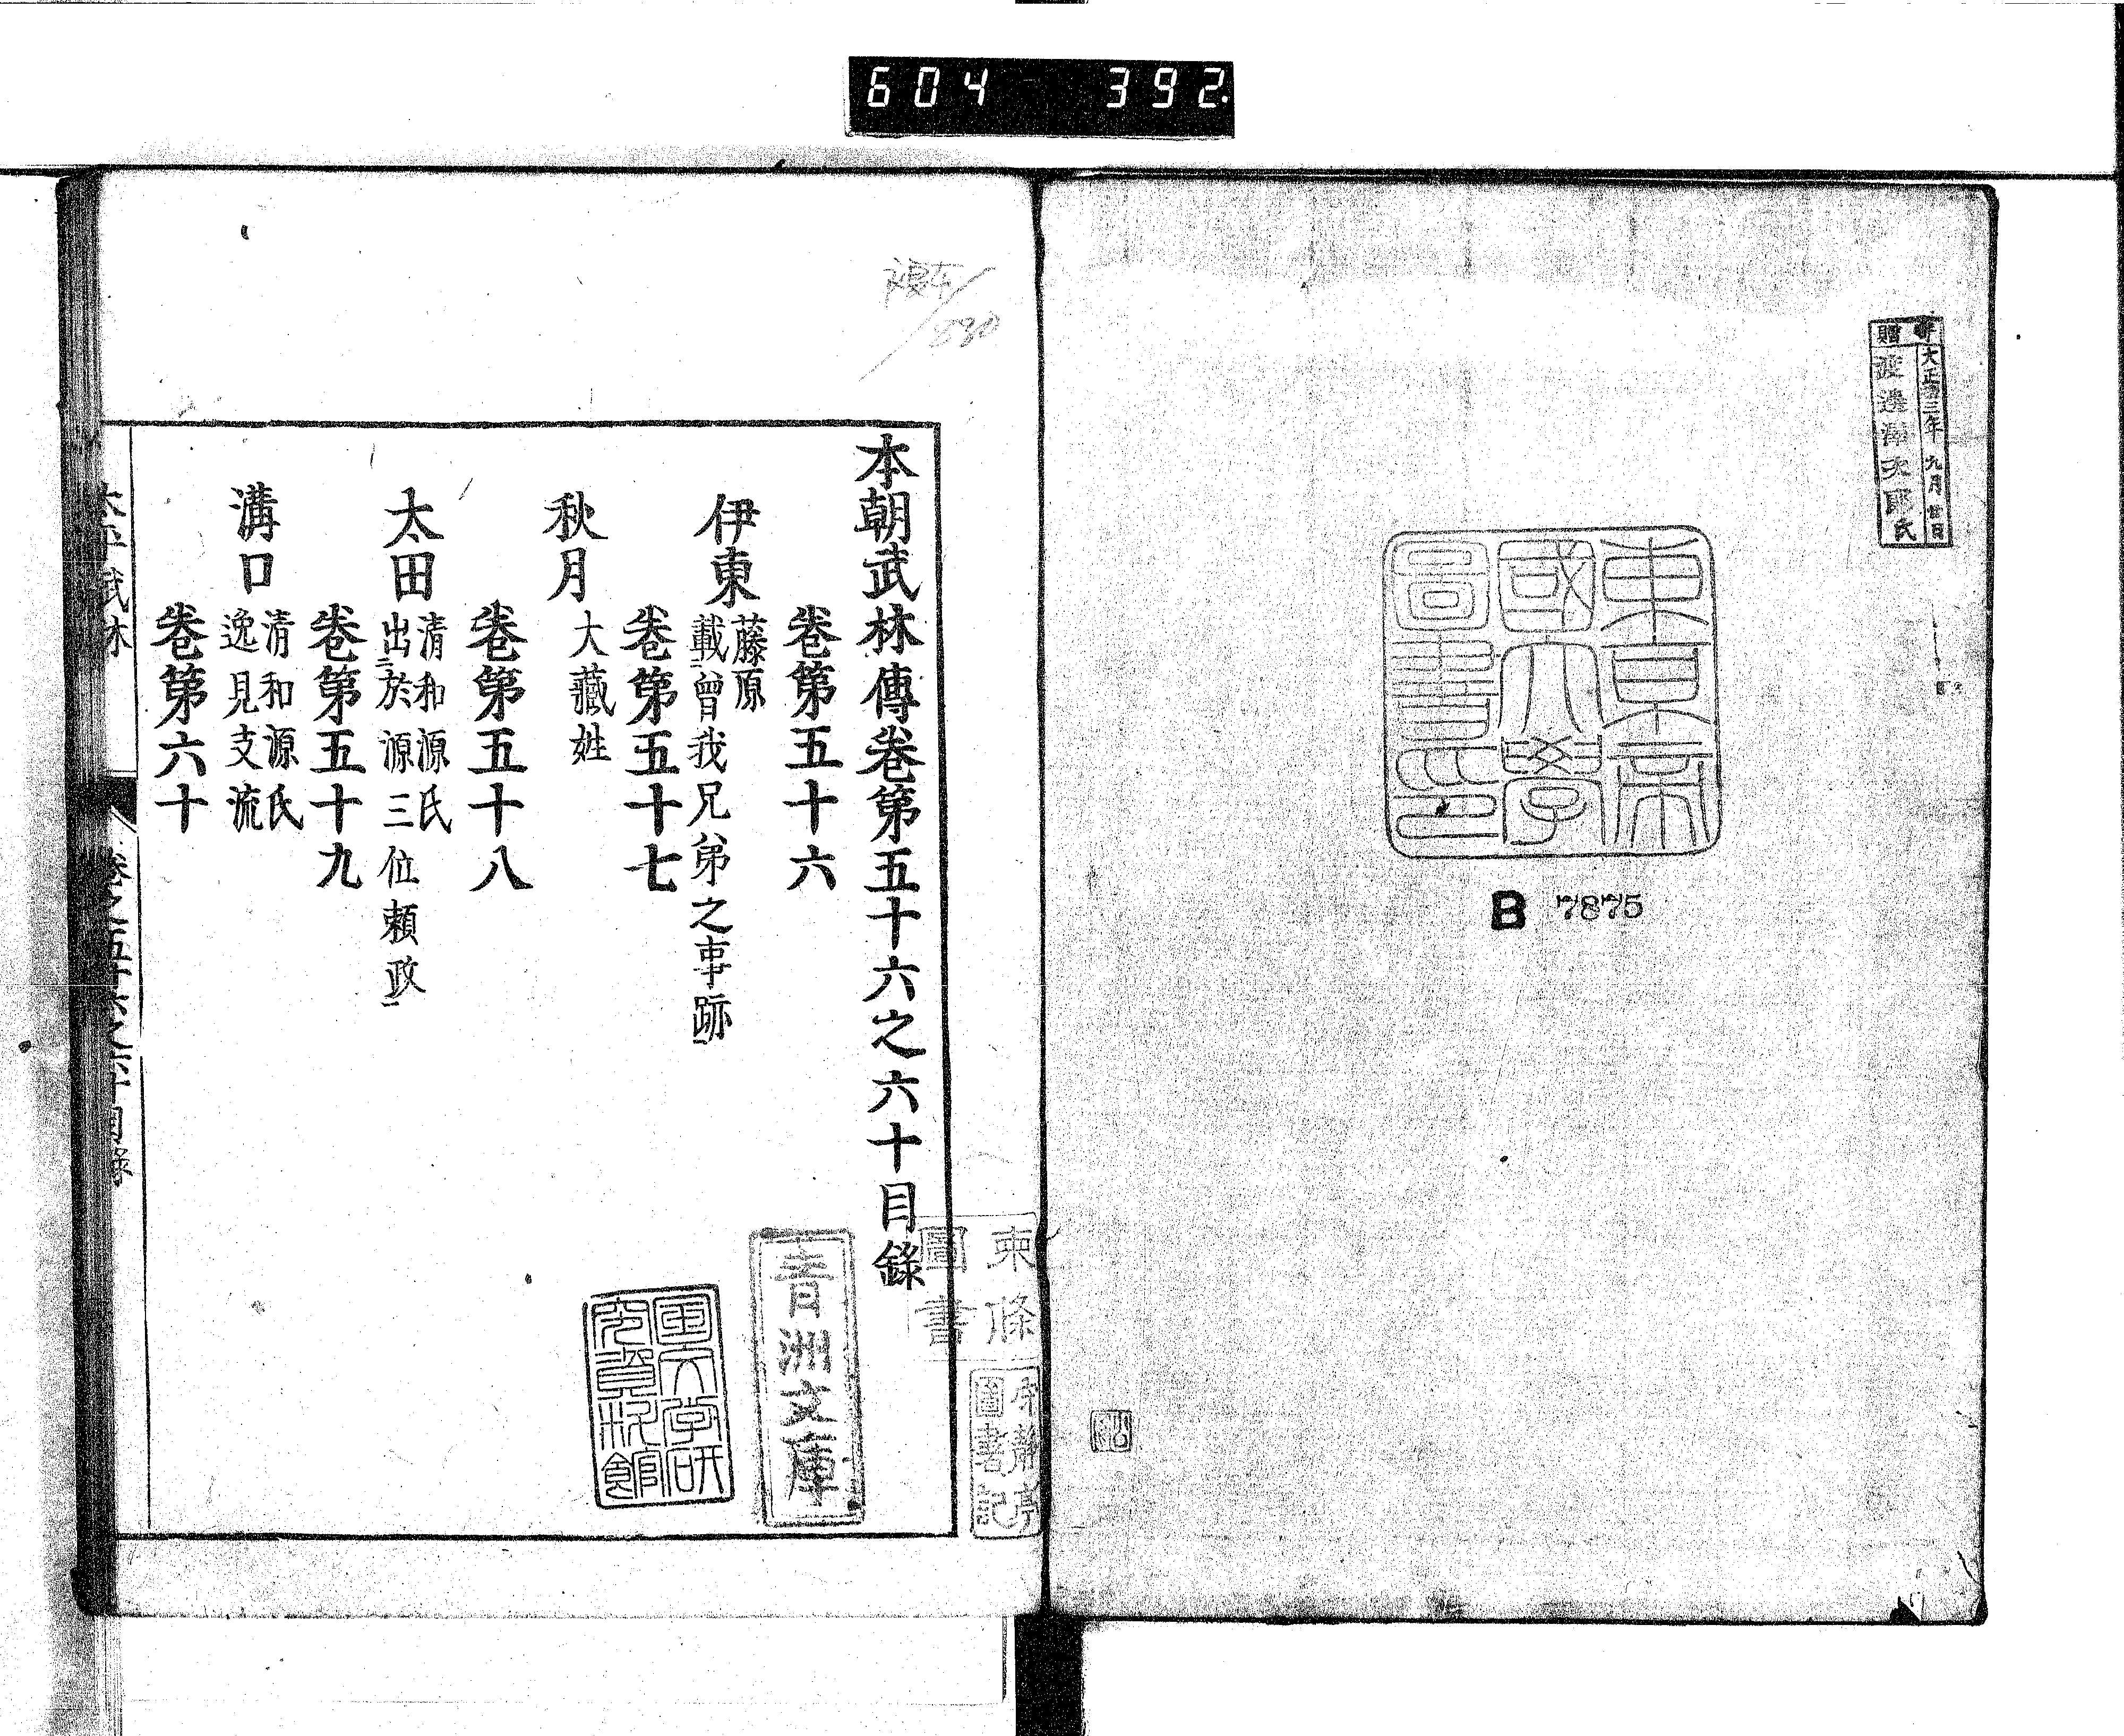 604 392.
寄贈
大正十三年九月廿日
渡邊
氏
東京帝
國大學
圖書之印
B 7875
本朝武林傳卷第五十六之六十目錄
卷第五十六
伊東
藤原
載曾我兄弟之事跡
卷第五十七
秋月
大藏姓
卷第五十八
太田
清和源氏
出於源三位頼政
卷第五十九
溝口
清和源氏
逸見支流
卷第六十
東條
圖書
靜亭
圖書記
青洲文庫
國文学研
究資料館